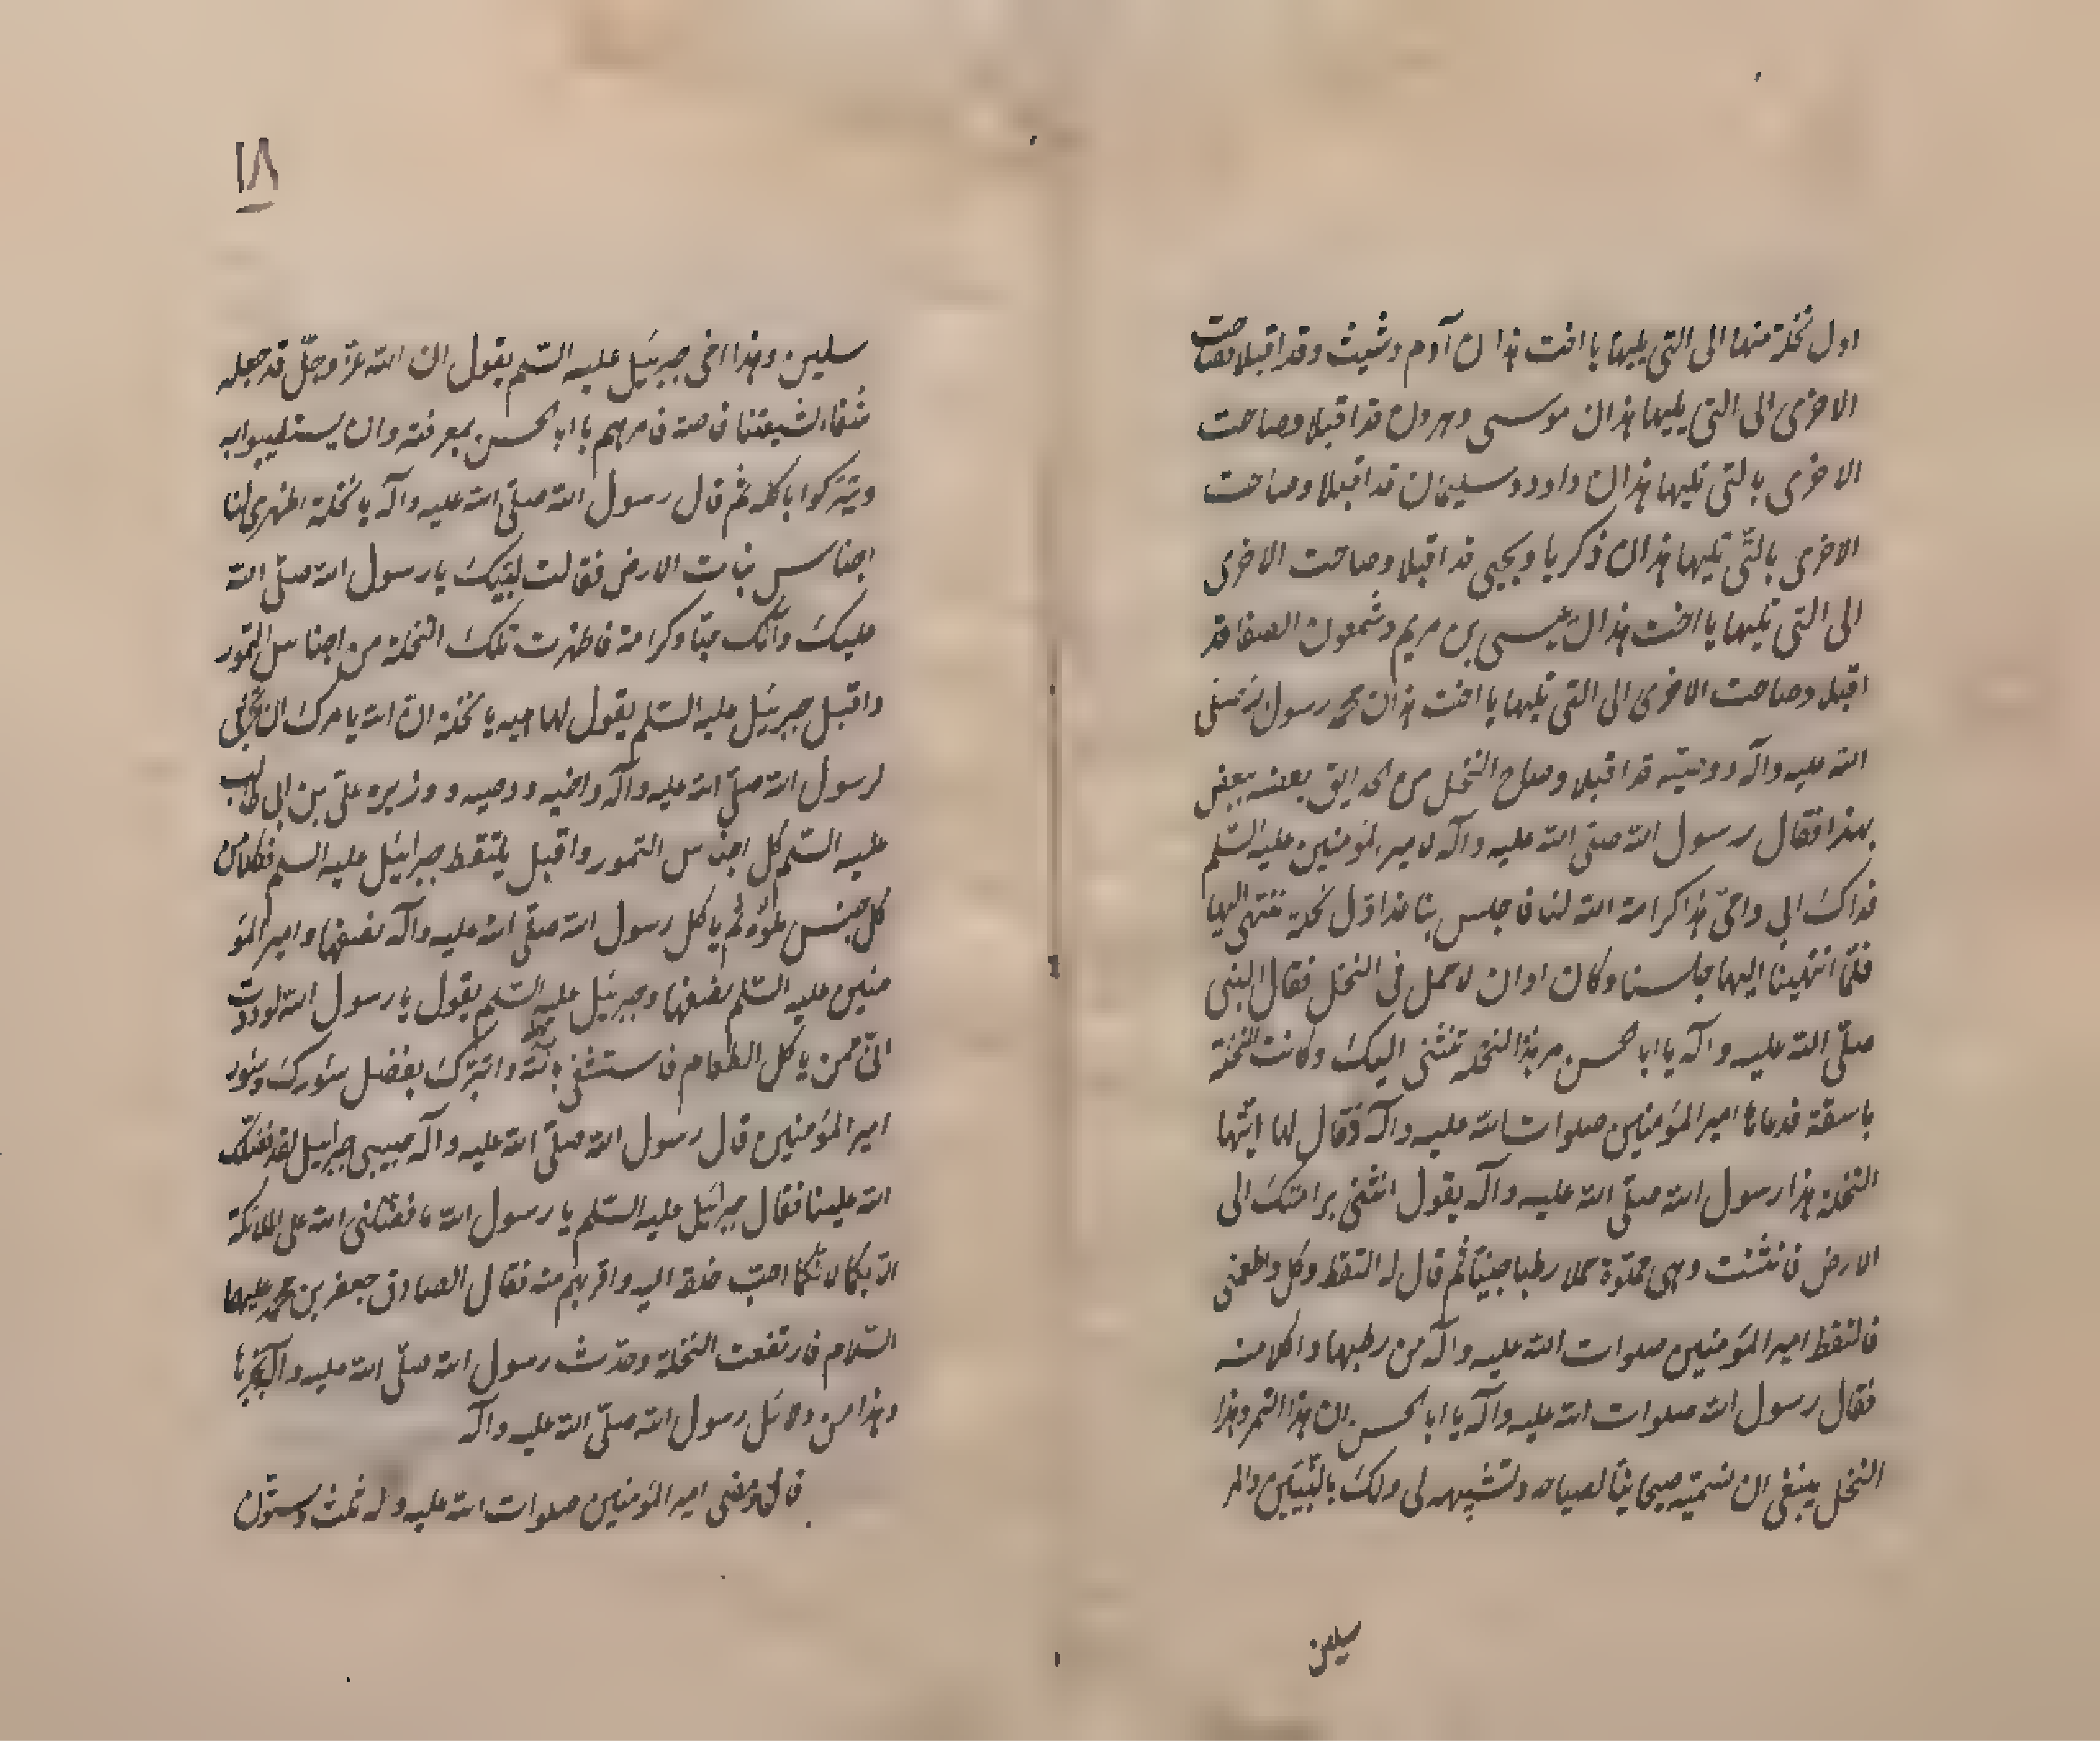 اول نخلة منها الى التى يليها يا اخت هذان آدم وشيث وقد اقبلا فصاحت
الاخرى الى التى يليها هذان موسى وهرون قد اقبلا وصاحت
الاخرى بالتى تليها هذان داود وسليمان قد اقبلا وصاحت
الاخرى بالتّى تليها هذان ذكريا ويحيى قد اقبلا وصاحت الاخرى
الى التى تليها يا اخت هذان عيسى بن مريم وشمعون الصفا قد
اقبلا وصاحت الاخرى الى التى تليها يا اخت هذان محمد رسول صلى
الله عليه وآله ووصيّه قد اقبلا وصاح النخل من الحدايق بعضه ببعض
بهذا فقال رسول الله صلّى الله عليه وآله لامير المؤمنين عليه السّلم
فداك ابى وامّى هذا كرامة الله لنا فاجلس بنا عند اوّل نخلة ننتهى اليها
فلمّا انتهينا اليها جلسنا وكان اوان لا حمل فى النخل فقال النبى
صلّى الله عليه وآله يا ابا الحسن مر هذا النخله تنثنى اليك وكانت النخلة
باسقة فدعاها امير المؤمنين صلوات الله عليه وآله فقال لها ايّتها
النخلة هذا رسول الله صلّى الله عليه وآله يقول انثنى براسك الى
الارض فانثنت وهى مملوّة حملا رطبا جنيّا ثم قال له التقط وكل واطعمنى
فالتقط امير المؤمنين صلوات الله عليه وآله من رطبها واكلا منه
فقال رسول الله صلوات الله عليه وآله يا ابا الحسن ان هذا التمر وهذا
النخل ينبغى ان نسمّيه صيحانيّا لصياحه وتشبيهه لى ولك بالنبيّين والمر
سلين
١٨
سلين وهذا اخى جبرئيل عليه السّلم يقول ان الله عزّ وجلّ قد جعله
شفاء لشيعتنا خاصة فامرهم يا ابا الحسن بمعرفته وان يستطيبوا به
ويتبركوا باكله ثم قال رسول الله صلّى الله عليه وآله يا نخلة اظهرى لنا
اجناس نبات الارض فقالت لبّيك يا رسول الله صلّى الله
عليك وآلك حبّا وكرامة فاظهرت تلك النخلة من اجناس التمور
واقبل جبرئيل عليه السّلم يقول لها هيه يا نخلة انّ الله يامرك ان تخرجى
لرسول الله صلّى الله عليه وآله واخيه ووصيه ووزيره علىّ بن ابى طالب
عليه السّلم كل اجناس التمور واقبل يلتقط جبرائيل عليه السلم فكلا من
كل جنس ثم ياكل رسول الله صلّى الله عليه وآله نصفها وامير المؤ
منين عليه السّلم نصفها وجبرئيل عليه السّلم يقول يا رسول الله لوددت
انّى ممن ياكل الطعام فاستشفى بالله واتبرك بفضل سؤرك وسؤر
امير المؤمنين قال رسول الله صلّى الله عليه وآله حبيبى جبرايل لقد فضّلك
الله علينا فقال جبرئيل عليه السّلم يا رسول الله ما فضّلنى الله على الملائكة
الّا بكما لانّكما احبّ خلقه اليه واقربهم منه فقال الصادق جعفر بن محمد عليهما
السّلام فارتفعت النخلة وحدّث رسول الله صلّى الله عليه وآله بخبرها
وهذا من دلائل رسول الله صلّى الله عليه وآله
قال ومضى امير المؤمنين صلوات الله عليه وله ثلث وستّون